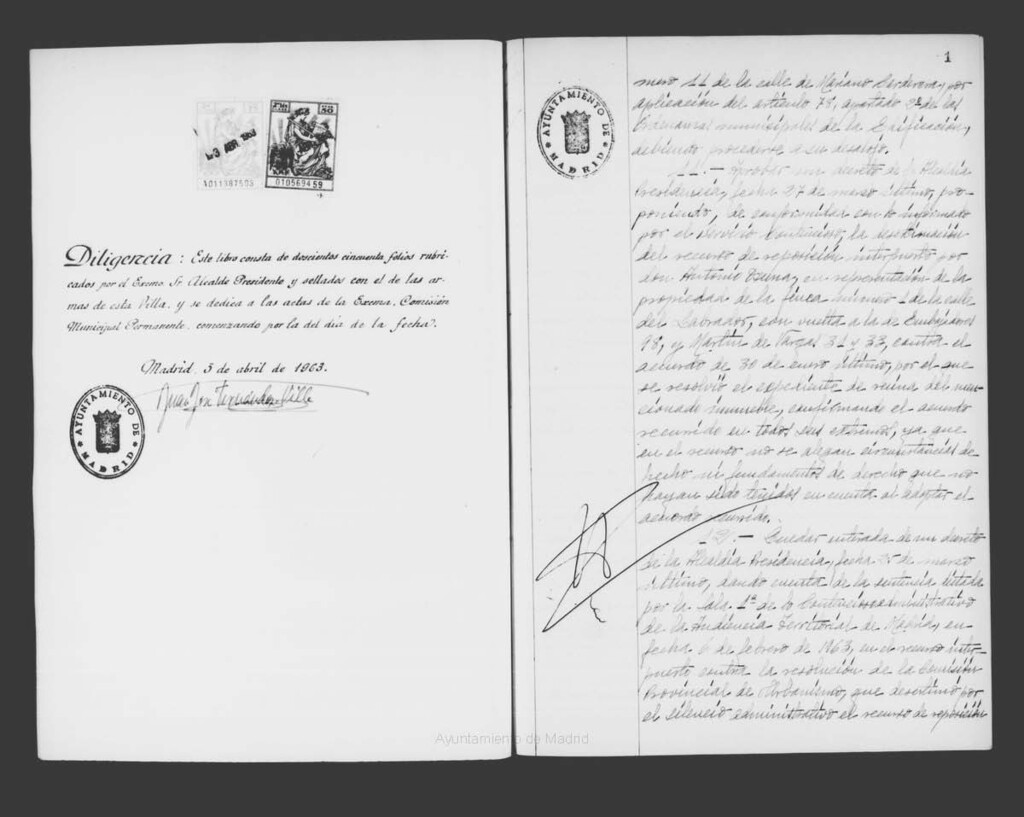 3 ABR 1963
010569459
Diligencia : Este libro consta de doscientos cincuenta folios rubri-
cados por el Excmo Sr. Alcalde Presidente y sellados con el de las ar-
mas de esta Villa, y se dedica a las actas de la Excma. Comisión
Municipal Permanente, comenzando por la del día de la fecha.
Madrid, 3 de abril de 1963.
AYUNTAMIENTO DE
MADRID
1
AYUNTAMIENTO DE
MADRID
mero 11 de la calle de Mariano por
aplicación del artículo 78, apartado 3º de las
Ordenanzas municipales de la Edificación,
debiendo procederse a su desalojo.
11.- Aprobar un decreto de la Alcaldía
Presidencia, fecha 27 de marzo último, pro-
poniendo, de conformidad con lo informado
por el Servicio Contencioso, la desestimación
del recurso de reposición interpuesto por
don Antonio en representación de la
propiedad de la finca número 1 de la calle
del Labrador, con vuelta a la de Embajadores
98, y Martín de Vargas 31 y 33, contra el
acuerdo de 30 de enero último, por el que
se resolvió el expediente de ruina del men-
cionado inmueble, confirmando el acuerdo
recurrido en todos sus extremos, ya que
en el recurso no se alegan circunstancias de
hecho ni fundamentos de derecho que no
hayan sido tenidos en cuenta al adoptar el
acuerdo recurrido.
12.- Quedar enterada de un decreto
de la Alcaldía Presidencia, fecha 25 de marzo
último, dando cuenta de la sentencia dictada
por la Sala 1ª de lo Contencioso administrativo
de la Audiencia Territorial de Madrid, en
fecha 6 de febrero de 1963, en el recurso inter-
puesto contra la resolución de la Comisión
Provincial de Urbanismo, que desestimó por
el silencio administrativo el recurso de reposición
Ayuntamiento de Madrid